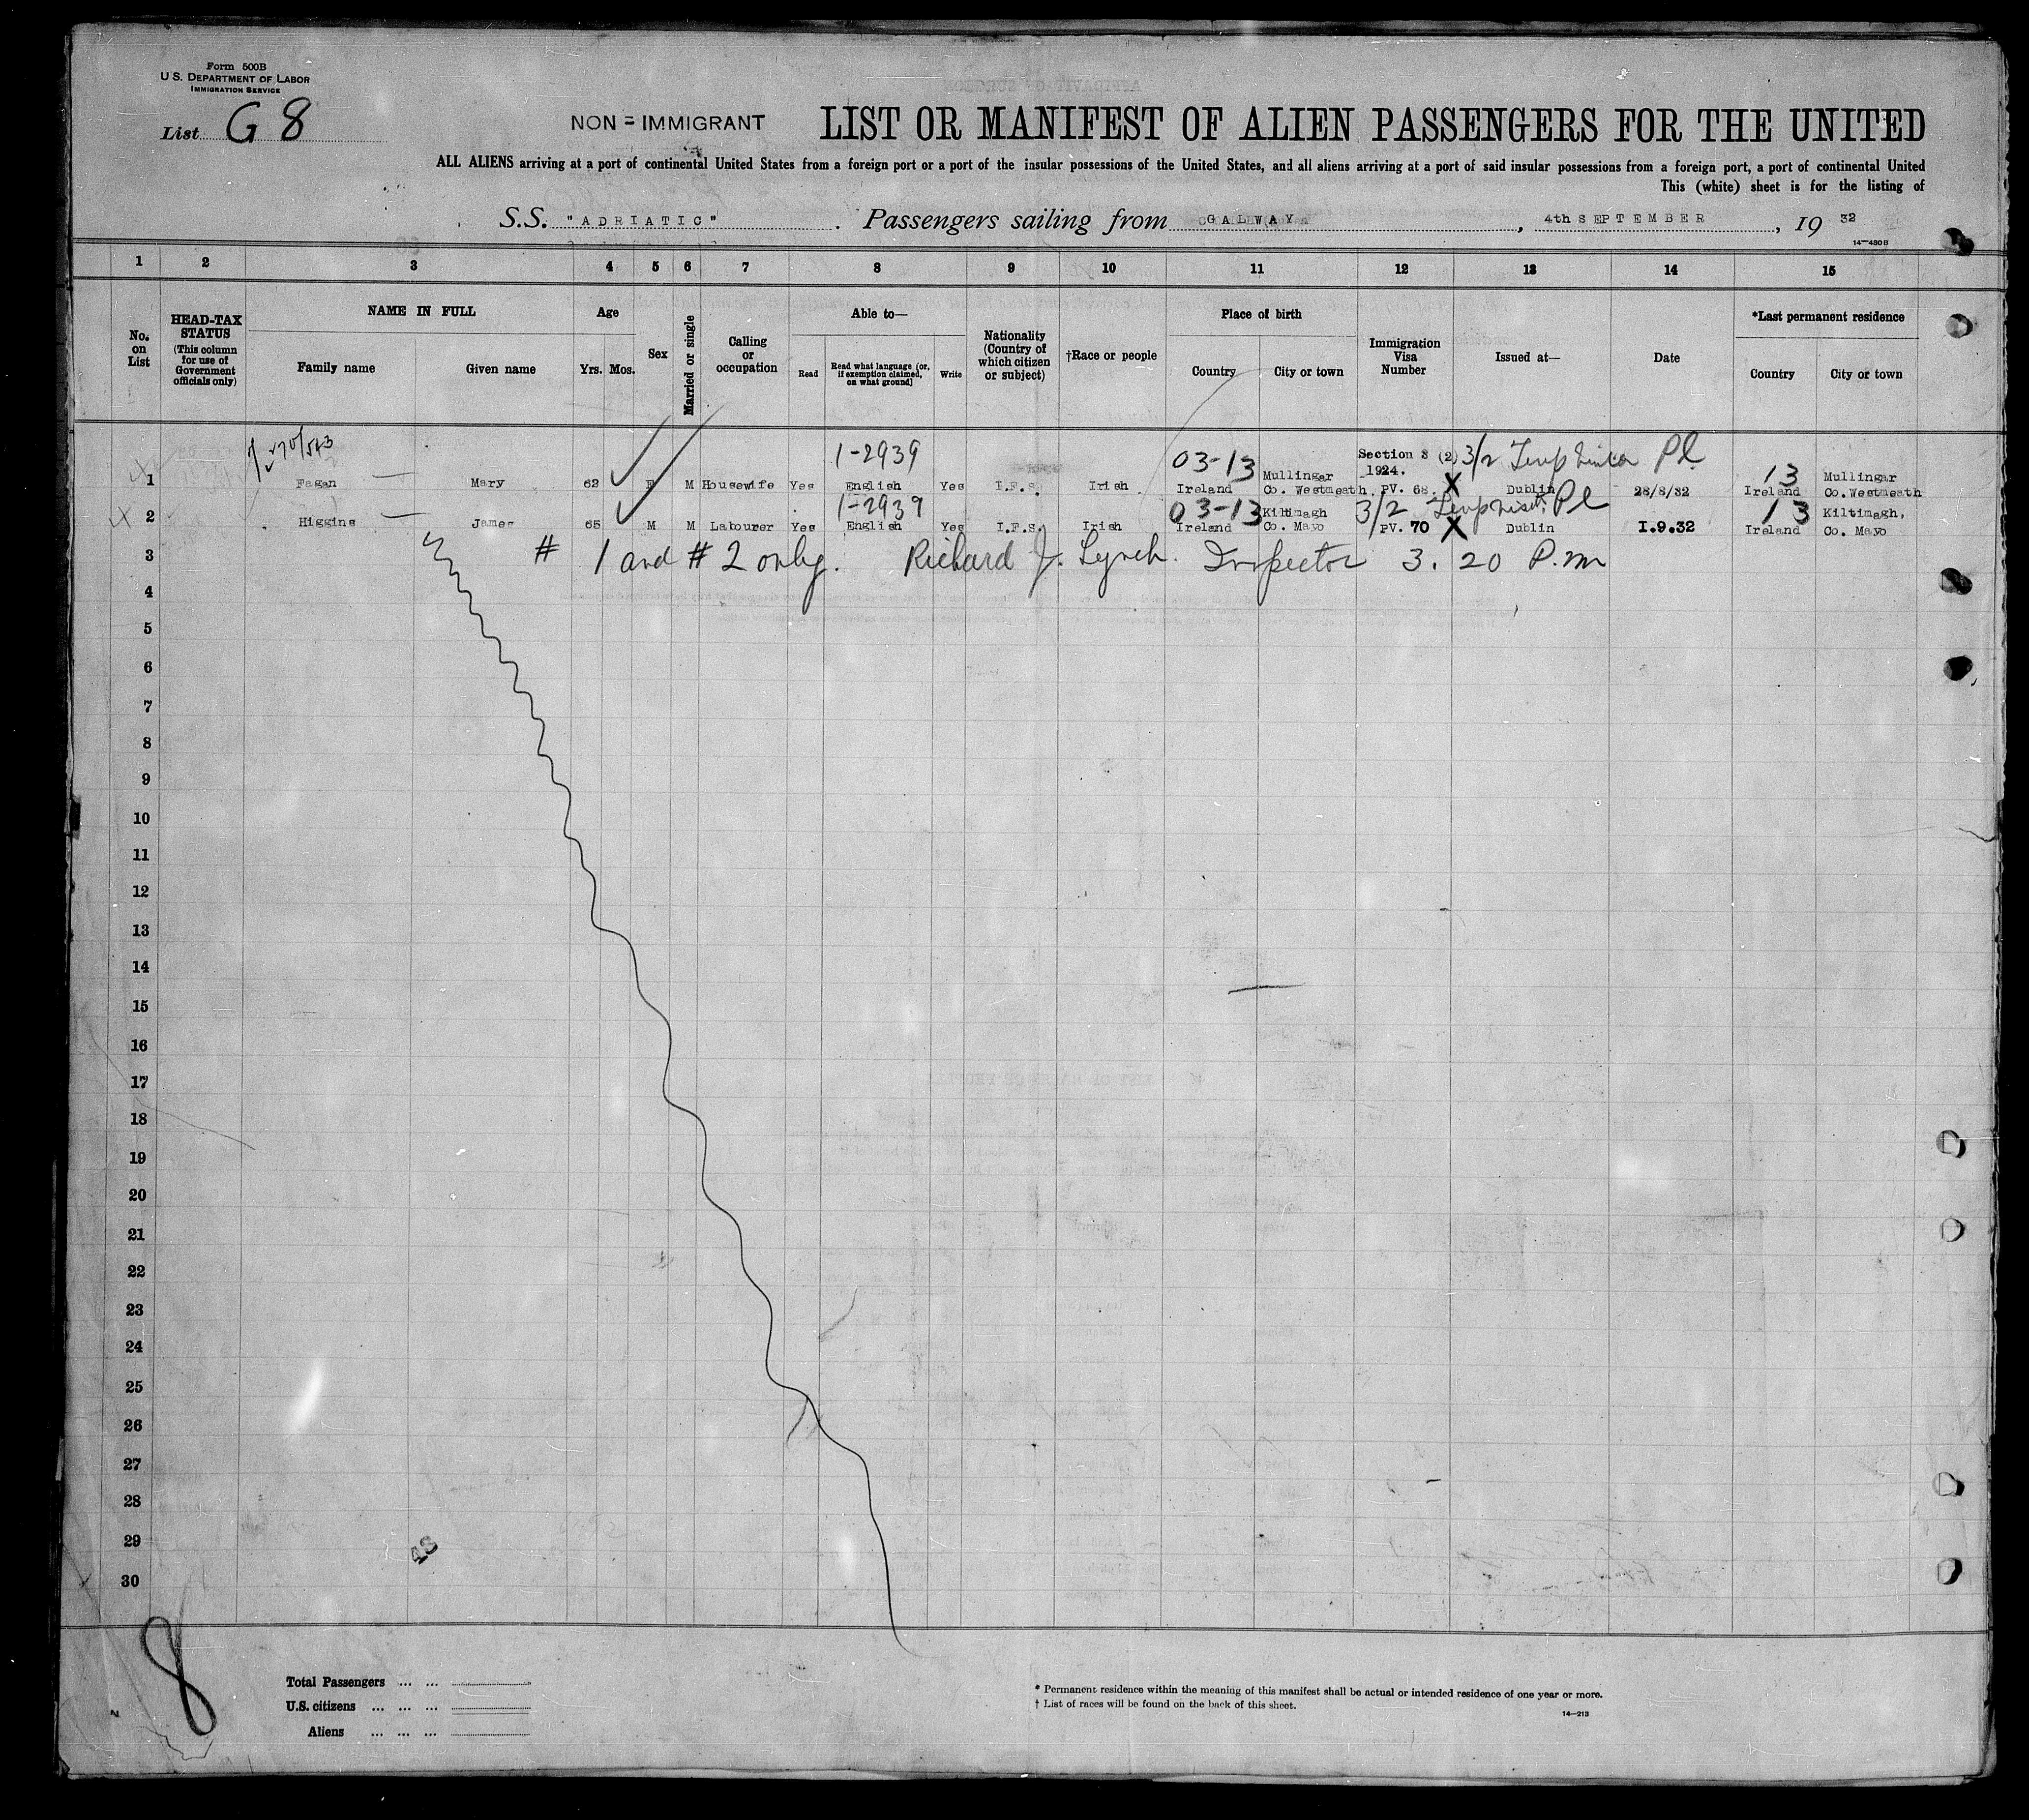 Form 500B
U. S. DEPARTMENT OF LABOR
IMMIGRATION SERVICE
List G 8
NON-IMMIGRANT
LIST OR MANIFEST OF ALIEN PASSENGERS FOR THE UNITED
ALL ALIENS arriving at a port of continental United States from a foreign port or a port of the insular possessions of the United States, and all aliens arriving at a port of said insular possessions from a foreign port, a port of continental United
This (white) sheet is for the listing of
S.S. "ADRIATIC". Passengers sailing from GALWAY, 4th SEPTEMBER, 19 32
14-480B
1 2 3 4 5 6 7 8 9 10 11 12 13 14 15
No. on List
HEAD-TAX STATUS (This column for use of Government officials only)
NAME IN FULL
Family name Given name
Age
Yrs. Mos.
Sex
Married or single
Calling or occupation
Able to—
Read
Read what language (or, if exemption claimed, on what ground)
Write
Nationality (Country of which citizen or subject)
†Race or people
Place of birth
Country City or town
Immigration Visa Number
Issued at—
Date
*Last permanent residence
Country City or town
1-2939 03-13 Section 3 (2) 1924. 3/2 Temp Visitor Pl 13
1 Fagan — Mary 62 F M Housewife Yes English Yes I.F.S. Irish Ireland Mullingar Co. Westmeath PV. 68. X Dublin 28/8/32 Ireland Mullingar Co. Westmeath
1-2939 03-13 3/2 Temp Visit Pl 13
2 Higgins — James 65 M M Labourer Yes English Yes I.F.S. Irish Ireland Kiltimagh Co. Mayo PV. 70 X Dublin 1.9.32 Ireland Kiltimagh, Co. Mayo
3 # 1 and # 2 only. Richard J. Lynch. Inspector 3.20 P.m
4
5
6
7
8
9
10
11
12
13
14
15
16
17
18
19
20
21
22
23
24
25
26
27
28
29
30
48
8
Total Passengers ... ...
U.S. citizens ... ... ...
Aliens ... ... ...
* Permanent residence within the meaning of this manifest shall be actual or intended residence of one year or more.
† List of races will be found on the back of this sheet.
14-213